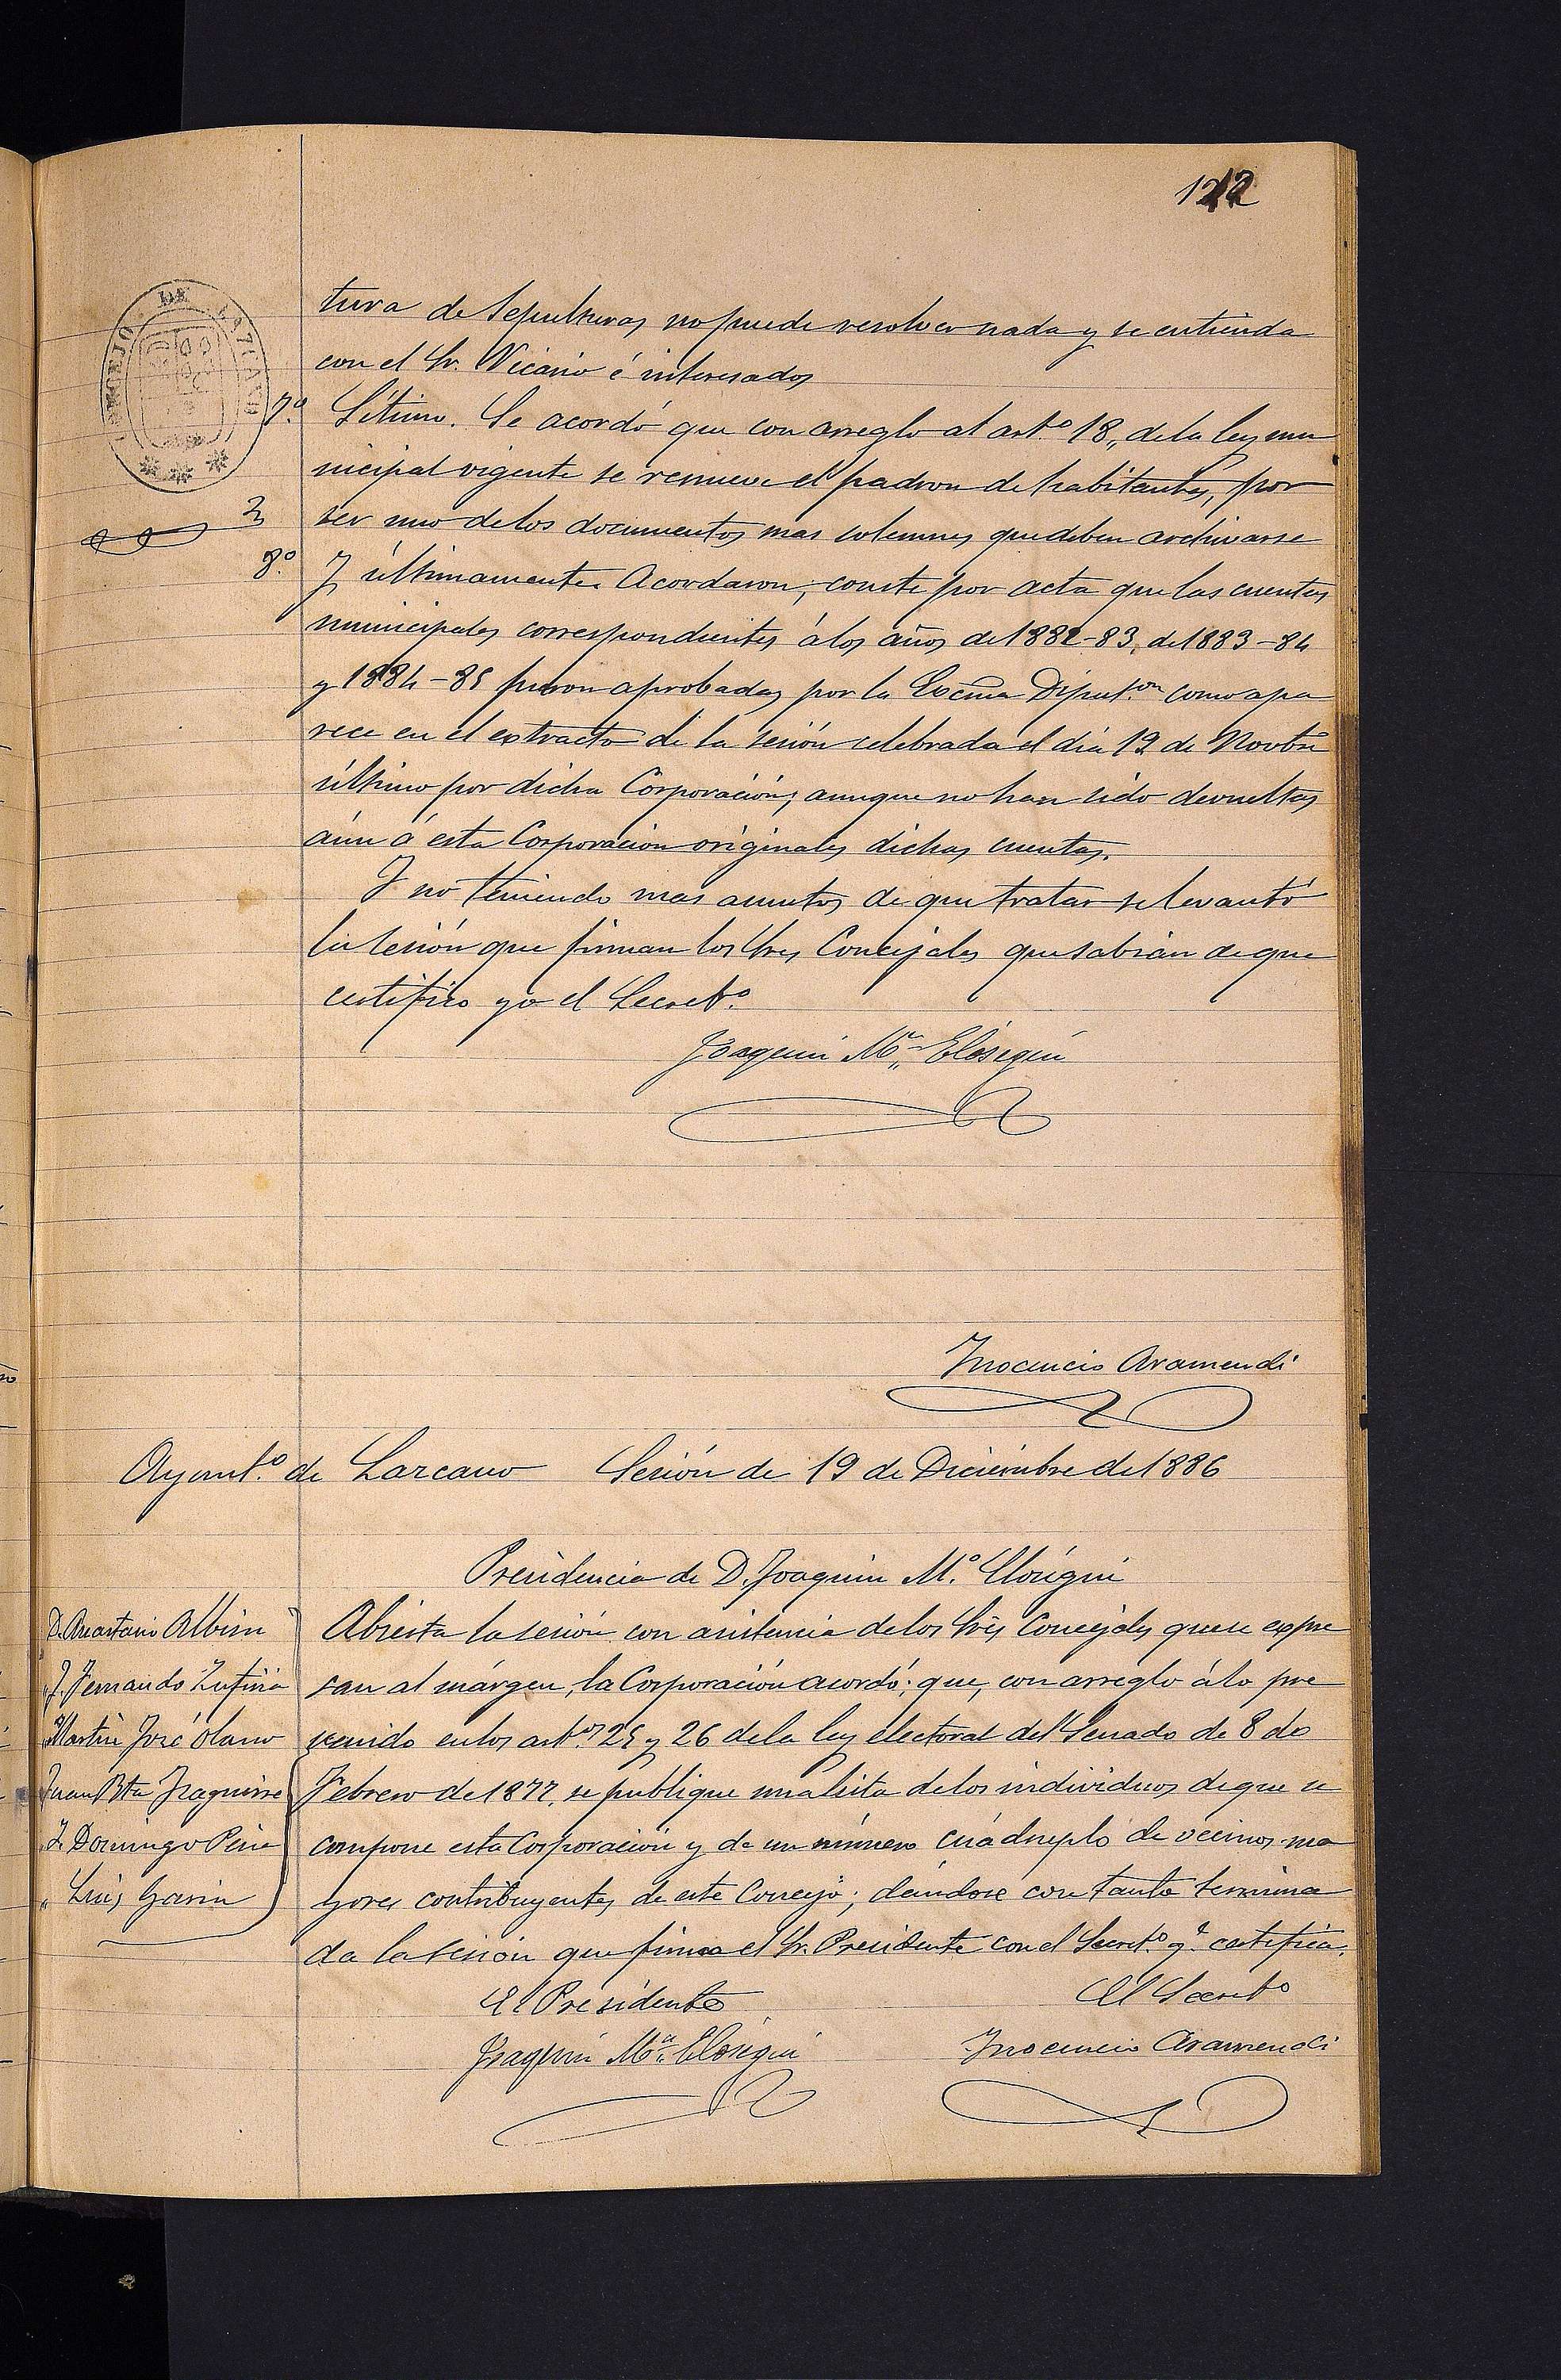 122
CONCEJO DE LAZCANO
tura de Sepulturas no puede resolver nada y se entienda
con el Sr. Vicario é interesados
7.º Sétimo. Se acordó que con arreglo al art.º 18, de la ley mu
nicipal vigente se renueve el padron de habitantes, por
ser uno de los documentos mas solemnes que deben archivarse
8.º Y últimamente Acordaron, conste por acta que las cuentas
municipales correspondientes á los años de 1882-83, de 1883-84
y 1884-85 fueron aprobadas por la Excma Diput.on como apa
rece en el extracto de la sesión celebrada el dia 19 de Novbre
último por dicha Corporación; aunque no han sido devueltas
aún á esta Corporación originales dichas cuentas.
Y no teniendo mas asuntos de que tratar se levantó
la sesión que firman los Sres Concejales que sabian de que
certifico yo el Secret.º
Joaquin M.a Elósegui
Inocencio Aramendi
Ayunt.º de Lazcano Sesión de 19 de Diciembre de 1886
Presidencia de D. Joaquin M.ª Elósegui
D. Anastasio Albisu
J. Fernando Zufiria
Martin José Olano
Juan Bta Yraguirre
J. Domingo
" Luis Garin
Abierta la sesión con asistencia de los Sres Concejales que se expre
san al márgen, la Corporación acordó; que, con arreglo á lo pre
venido en los art.os 25 y 26 de la ley electoral del Senado de 8 de
Febrero de 1877, se publique una lista de los individuos de que se
compone esta Corporación y de un número cuádruplo de vecinos ma
yores contribuyentes de este Concejo; dándose con tanto termina
da la sesión que firma el Sr. Presidente con el Secret.º q.e certifica.
El Presidente
El Secret.º
Joaquin M.a Elósegui
Inocencio Aramendi